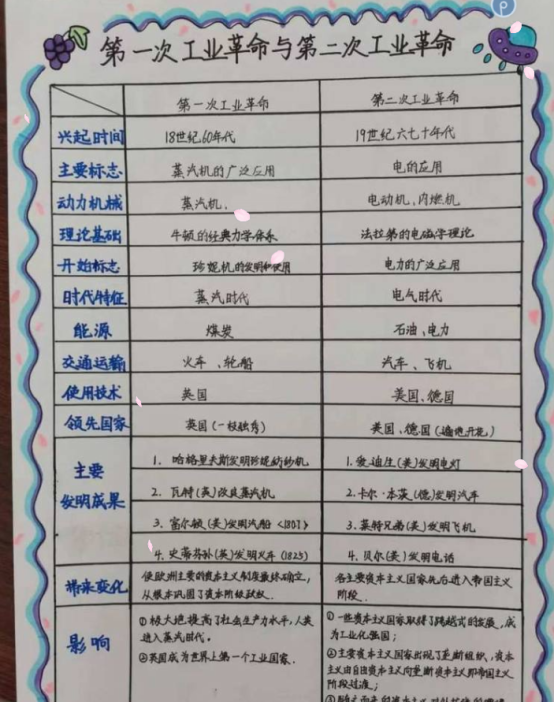 第一次工业革命与第二次工业革命
第一次工业革命 第二次工业革命
兴起时间 18世纪60年代 19世纪六七十年代
主要标志 蒸汽机的广泛应用 电的应用
动力机械 蒸汽机. 电动机、内燃机
理论基础 牛顿的经典力学体系 法拉第的电磁学理论
开始标志 珍妮机的发明和使用 电力的广泛应用
时代特征 蒸汽时代 电气时代
能源 煤炭 石油、电力
交通运输 火车、轮船 汽车、飞机
使用技术 英国 美国、德国
领先国家 英国(一枝独秀) 美国、德国(遍地开花)
主要
发明成果
1. 哈格里夫斯发明珍妮纺纱机 1.爱迪生(美)发明电灯
2. 瓦特(英)改良蒸汽机 2.卡尔·本茨(德)发明汽车
3. 富尔敏(美)发明汽船<1807> 3.莱特兄弟(美)发明飞机
4. 史蒂芬孙(英)发明火车(1825) 4.贝尔(美)发明电话
带来变化
使欧洲主要的资本主义制度最终确立, 各主要资本主义国家先后进入帝国主义
从根本巩固了资本阶级政权. 阶段.
影响
①极大地提高了社会生产力水平,人类 ①一些资本主义国家取得了跨越式的发展,成
进入蒸汽时代. 为工业化强国;
②英国成为世界上第一个工业国家. ②主要资本主义国家出现了垄断组织,资本
主义由自由资本主义向垄断资本主义即帝国主义
阶段过渡;